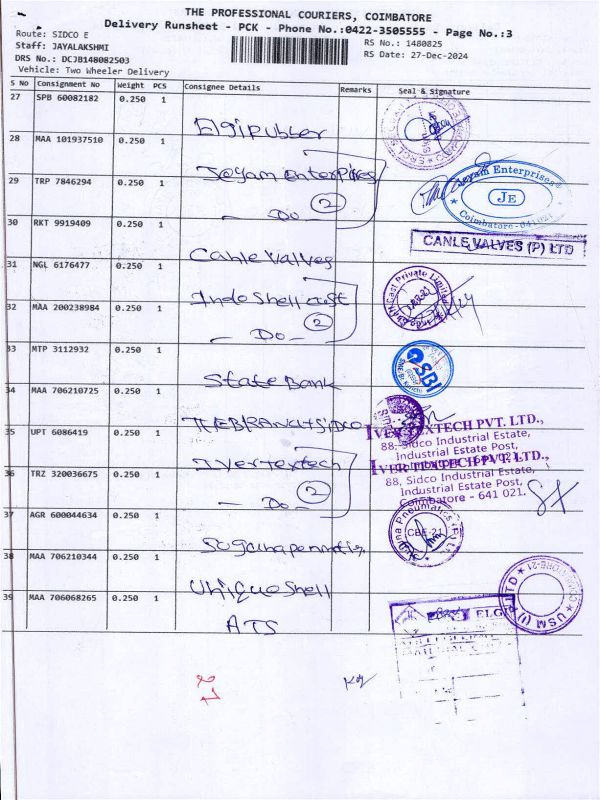 THE PROFESSIONAL COURIERS, COIMBATORE
Delivery Runsheet - PCK - Phone No.:0422-3505555 - Page No.:3
Route: SIDCO E
Staff: JAYALAKSHMI
RS No.: 1480825
DRS No.: DCJB148082503
RS Date: 27-Dec-2024
Vehicle: Two Wheeler Delivery
S No Consignment No Weight PCS Consignee Details Remarks Seal & Signature
27 SPB 60082182 0.250 1
Elgirubber
28 MAA 101937510 0.250 1
Jeyam Enterprises
29 TRP 7846294 0.250 1
- Do - 2
Jeyam Enterprises
JE
Coimbatore - 641 021
30 RKT 9919409 0.250 1
Canle Valves
CANLE VALVES (P) LTD
31 NGL 6176477 0.250 1
Indo Shell cast
32 MAA 200238984 0.250 1
- Do - 2
33 MTP 3112932 0.250 1
State Bank
SBI
34 MAA 706210725 0.250 1
35 UPT 6086419 0.250 1
Ivertextech
IVER TEXTECH PVT. LTD.,
88, Sidco Industrial Estate,
Industrial Estate Post,
36 TRZ 320036675 0.250 1
- Do - 2
IVER TEXTECH PVT. LTD.,
88, Sidco Industrial Estate,
Industrial Estate Post,
Coimbatore - 641 021.
37 AGR 600044634 0.250 1
CBE-21
38 MAA 706210344 0.250 1
Unique Shell
USM (I) P LTD
39 MAA 706068265 0.250 1
ATS
ELGI